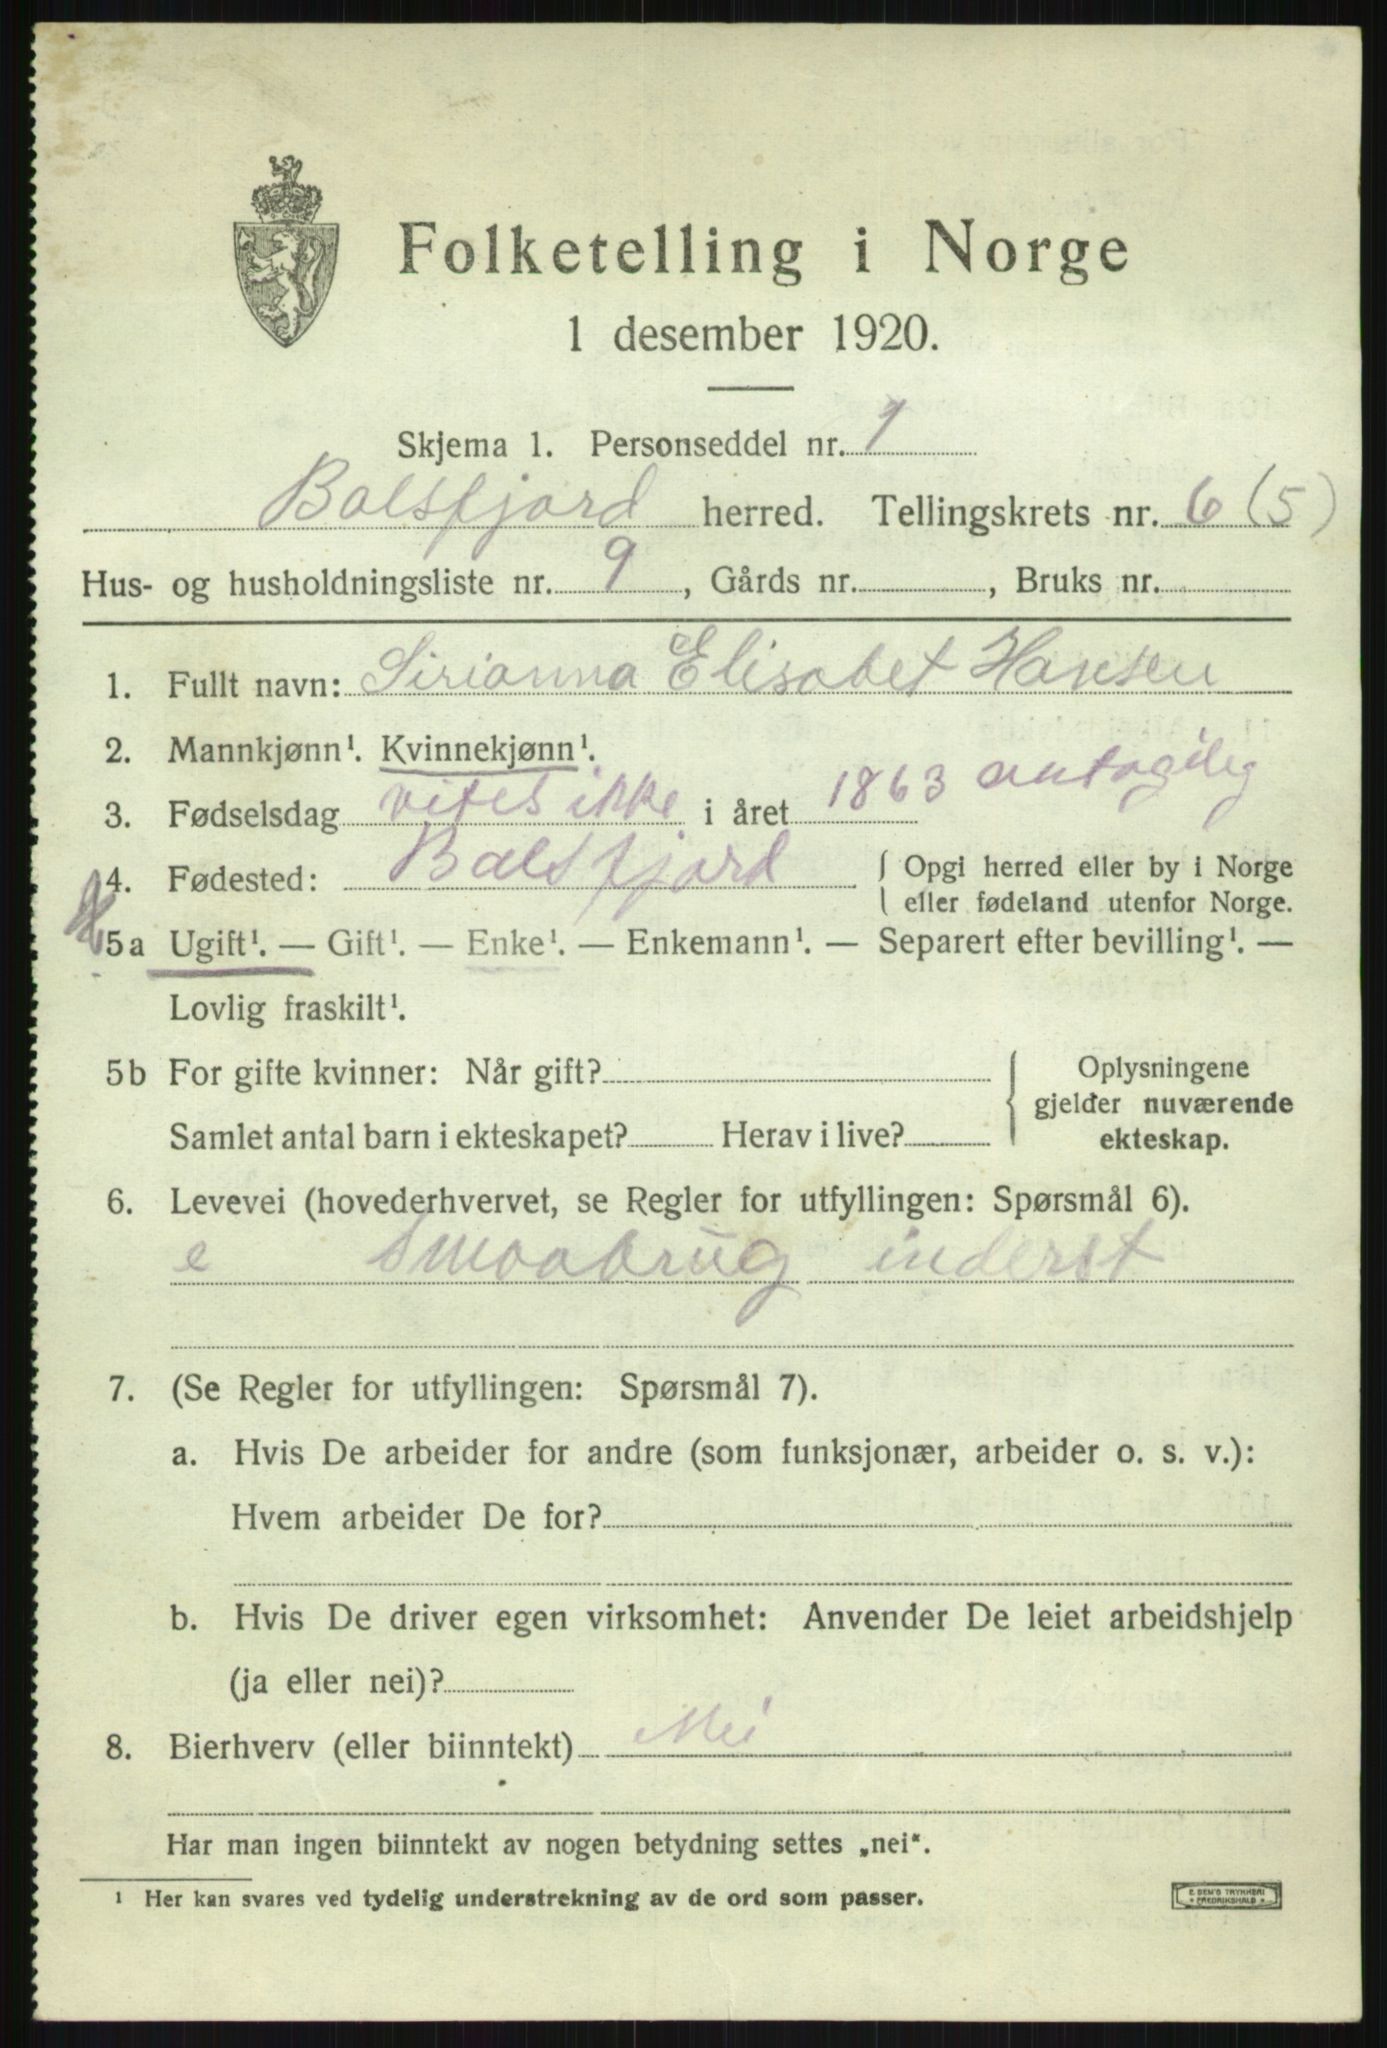 Folketelling i Norge
1 desember 1920.
Skjema 1. Personseddel nr. 1
Balsfjord herred. Tellingskrets nr. 6 (5)
Hus- og husholdningsliste nr. 9, Gårds nr. , Bruks nr.
1. Fullt navn: Sirianna Elisabet Hansen
2. Mannkjønn¹. Kvinnekjønn¹.
3. Fødselsdag vites ikke i året 1863 antagelig
4. Fødested: Balsfjord { Opgi herred eller by i Norge
eller fødeland utenfor Norge.
5a Ugift¹. — Gift¹. — Enke¹. — Enkemann¹. — Separert efter bevilling¹. —
Lovlig fraskilt¹.
5b For gifte kvinner: Når gift? { Oplysningene
gjelder nuværende
Samlet antal barn i ekteskapet? Herav i live? ekteskap.
6. Levevei (hovederhvervet, se Regler for utfyllingen: Spørsmål 6).
e Smaabrug inderst
7. (Se Regler for utfyllingen: Spørsmål 7).
a. Hvis De arbeider for andre (som funksjonær, arbeider o. s. v.):
Hvem arbeider De for?
b. Hvis De driver egen virksomhet: Anvender De leiet arbeidshjelp
(ja eller nei)?
8. Bierhverv (eller biinntekt) Nei
Har man ingen biinntekt av nogen betydning settes „nei".
¹ Her kan svares ved tydelig understrekning av de ord som passer.
E. SEM'S TRYKKERI
FREDRIKSHALD